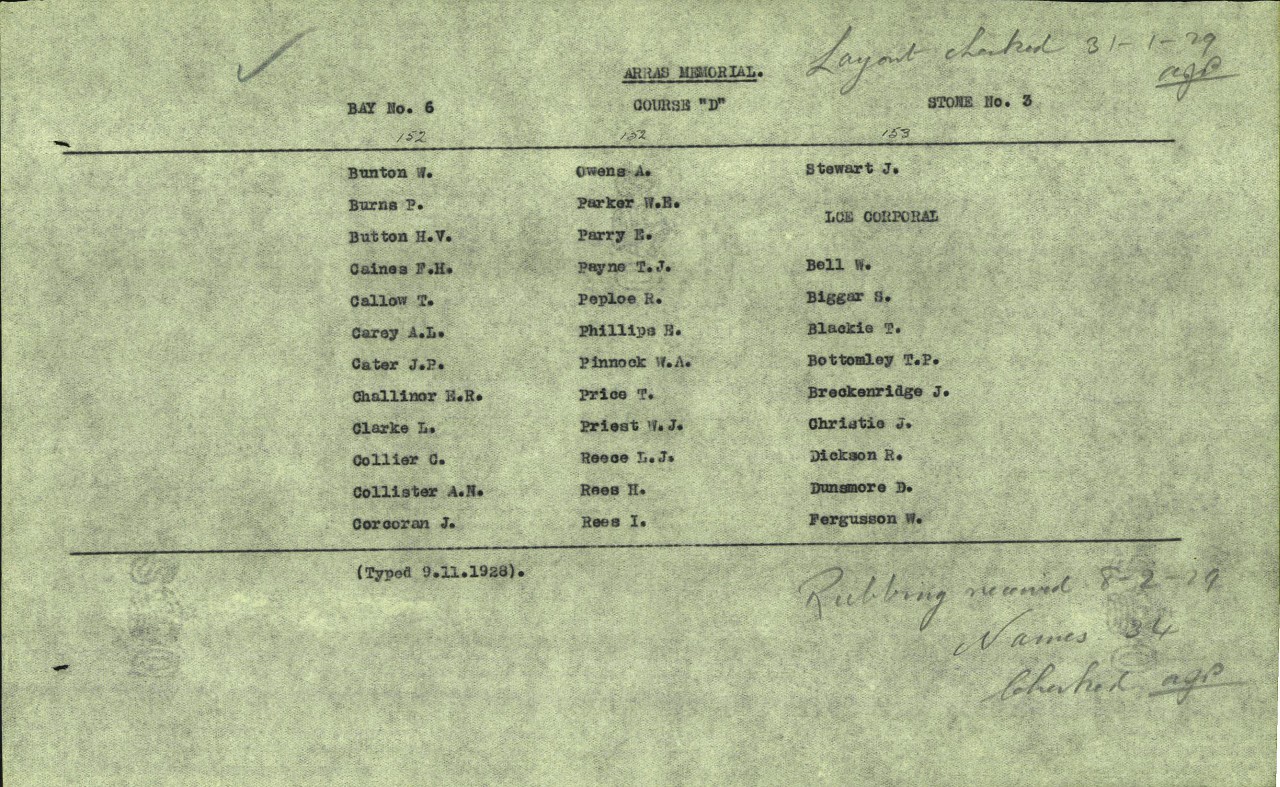 Layout checked 31-1-29
agp
ARRAS MEMORIAL.
BAY No. 6 COURSE "D" STONE No. 3
152 152 153
Bunton W. Owens A. Stewart J.
Burns P. Parker W.E.
LCE CORPORAL
Button H.V. Parry E.
Caines F.H. Payne T.J. Bell W.
Callow T. Peploe R. Biggar S.
Carey A.L. Phillips E. Blackie T.
Cater J.P. Pinnock W.A. Bottomley T.P.
Challinor E.R. Price T. Breckenridge J.
Clarke L. Priest W.J. Christie J.
Collier C. Reece L.J. Dickson R.
Collister A.N. Rees H. Dunsmore D.
Corcoran J. Rees I. Fergusson W.
(Typed 9.11.1928).
Rubbing received 8-2-29
Names 34
Checked agp